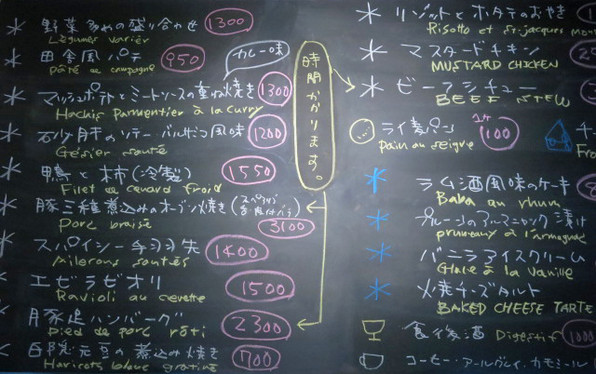 野菜多めの盛り合わせ 1300
Légumes varier
田舎風パテ 950
Pâté de campagne
カレー味
マッシュポテトとミートソースの重ね焼き 1300
Hachis parmentier à la curry
砂肝のソテー バルサミコ風味 1200
Gésier sauté
鴨と柿(冷製) 1550
Filet de canard froid
豚三種煮込みのオーブン焼き(スペアリブ
3100
Porc braisé
スパイシー手羽先 1400
Ailerons sautés
エビラビオリ 1500
Ravioli au crevette
豚足ハンバーグ 2300
Pied de porc rôti
白隠元豆の煮込み焼き 700
Haricots blanc gratiné
時間かかります。
リゾットとホタテのおやき
Risotto et st-jacques
マスタードチキン
MUSTARD CHICKEN
ビーフシチュー
BEEF STEW
ライ麦パン 100
Pain au seigre
ラム酒風味のケーキ
Baba au rhum
プルーンのアルマニャック漬け
pruneaux à l'armagnac
バニラアイスクリーム
Glace à la vanille
焼チーズタルト
BAKED CHEESE TARTE
食後酒 Digestif 1000
コーヒー・アールグレイ・カモミール